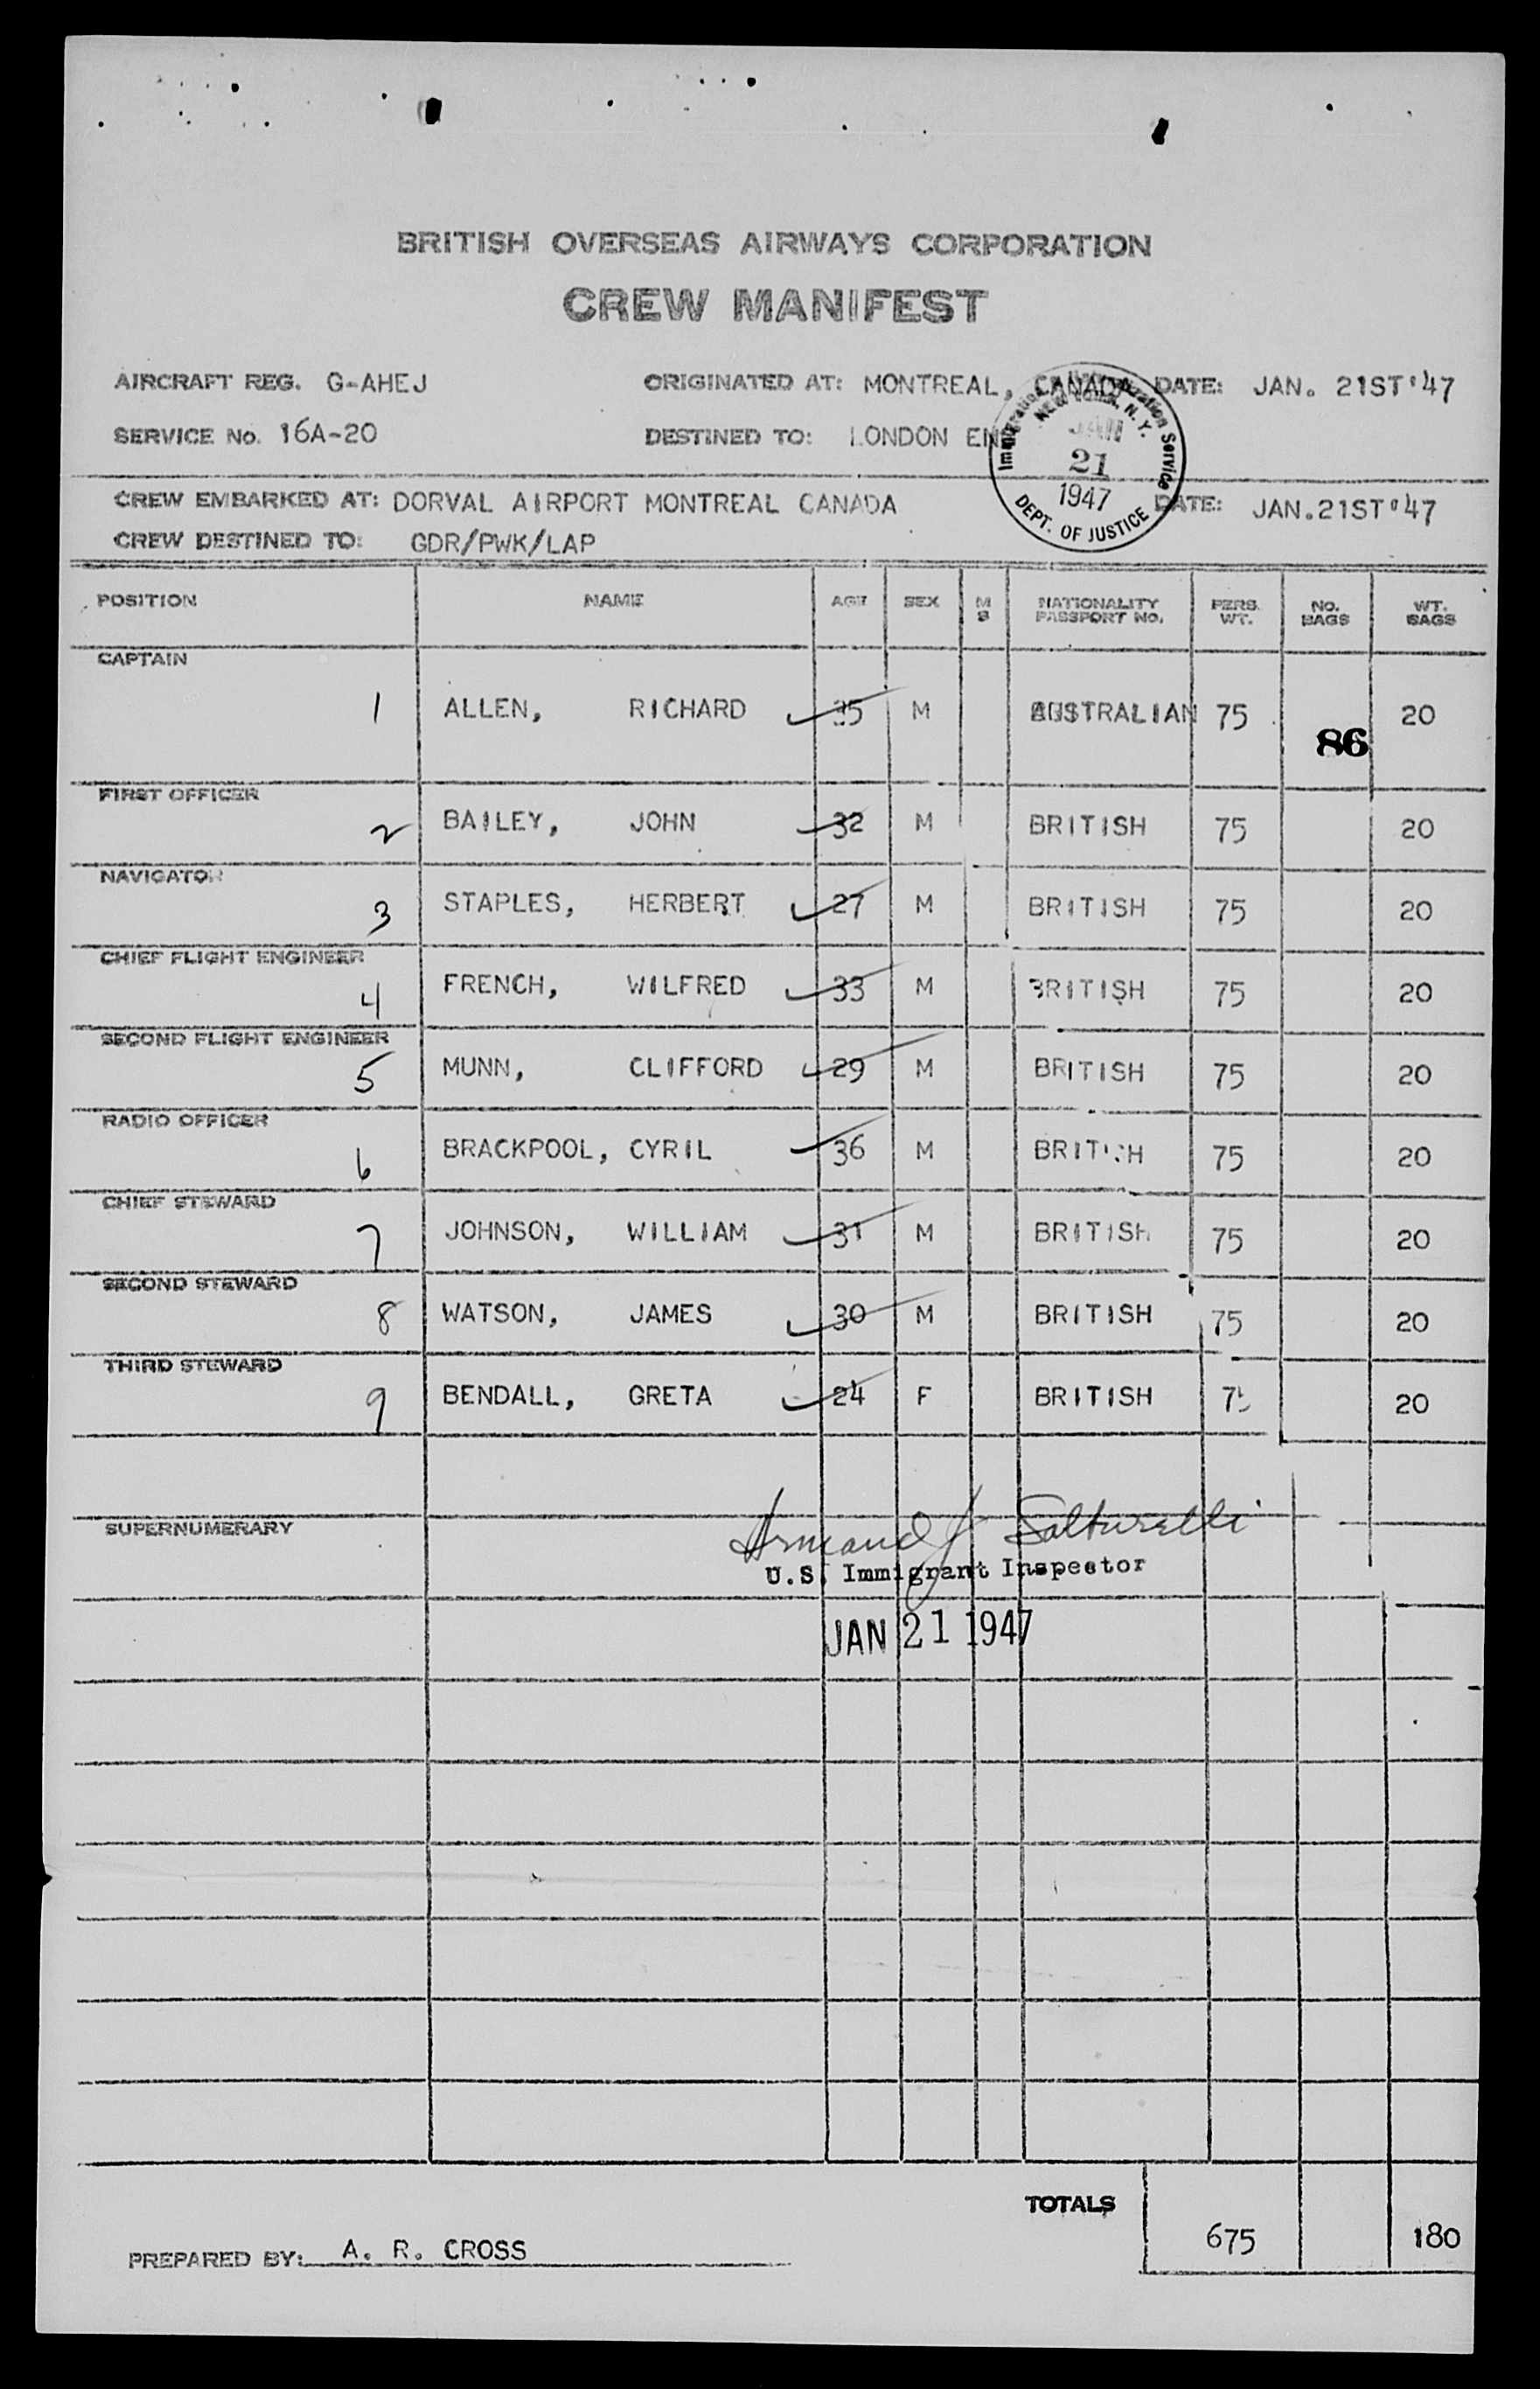 BRITISH OVERSEAS AIRWAYS CORPORATION
CREW MANIFEST
AIRCRAFT REG. G-AHEJ ORIGINATED AT: MONTREAL, CANADA DATE: JAN. 21ST '47
SERVICE No. 16A-20 DESTINED TO: LONDON ENG
Immigration Naturalization Service
NEW YORK, N. Y.
JAN
21
1947
DEPT. OF JUSTICE
CREW EMBARKED AT: DORVAL AIRPORT MONTREAL CANADA DATE: JAN.21ST '47
CREW DESTINED TO: GDR/PWK/LAP
POSITION NAME AGE SEX M S NATIONALITY PASSPORT NO. PERS. WT. NO. BAGS WT. BAGS
CAPTAIN
1 ALLEN, RICHARD 35 M AUSTRALIAN 75 86 20
FIRST OFFICER
2 BAILEY, JOHN 32 M BRITISH 75 20
NAVIGATOR
3 STAPLES, HERBERT 27 M BRITISH 75 20
CHIEF FLIGHT ENGINEER
4 FRENCH, WILFRED 33 M BRITISH 75 20
SECOND FLIGHT ENGINEER
5 MUNN, CLIFFORD 29 M BRITISH 75 20
RADIO OFFICER
6 BRACKPOOL, CYRIL 36 M BRITISH 75 20
CHIEF STEWARD
7 JOHNSON, WILLIAM 31 M BRITISH 75 20
SECOND STEWARD
8 WATSON, JAMES 30 M BRITISH 75 20
THIRD STEWARD
9 BENDALL, GRETA 24 F BRITISH 75 20
SUPERNUMERARY
Armand J Salturelli
U.S. Immigrant Inspector
JAN 21 1947
TOTALS
675 180
PREPARED BY: A. R. CROSS